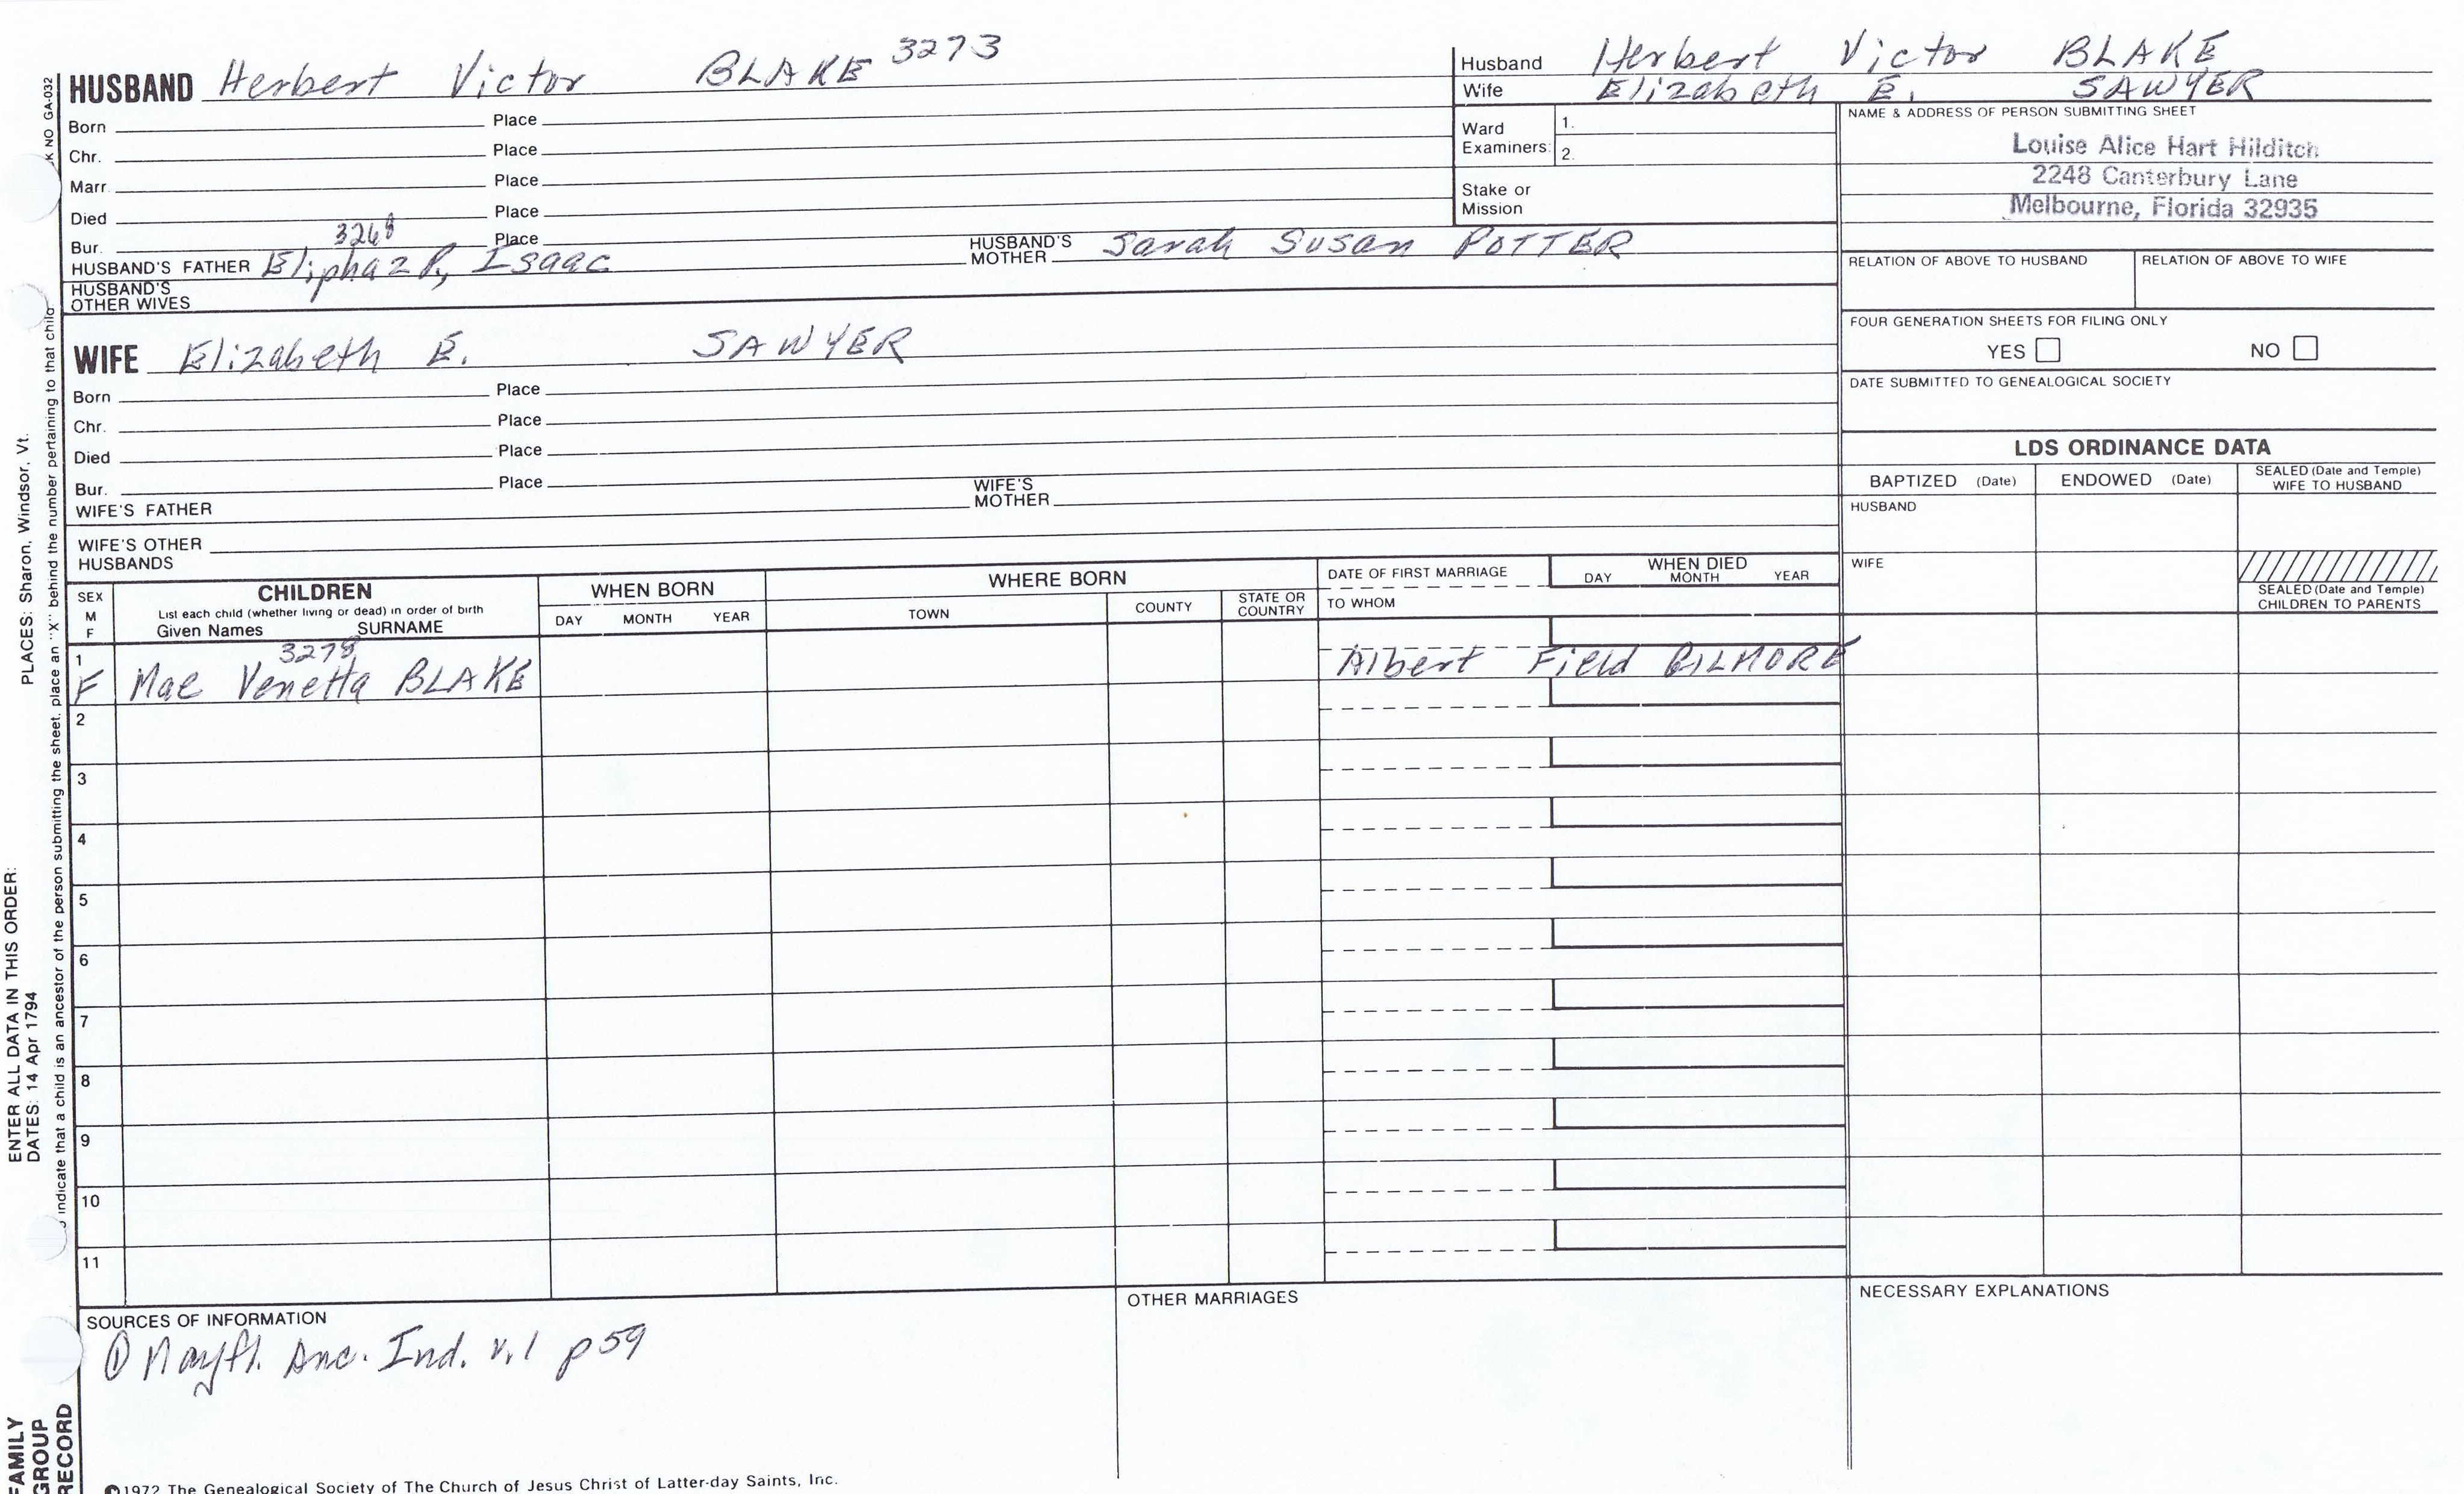 HUSBAND Herbert Victor BLAKE 3273
Born Place
Chr. Place
Marr. Place
Died Place
Bur. 3268 Place
HUSBAND'S FATHER Eliphaz P, Isaac HUSBAND'S MOTHER Sarah Susan POTTER
HUSBAND'S OTHER WIVES
WIFE Elizabeth E. SAWYER
Born Place
Chr. Place
Died Place
Bur. Place
WIFE'S FATHER WIFE'S MOTHER
WIFE'S OTHER HUSBANDS
Husband Herbert Victor BLAKE
Wife Elizabeth E. SAWYER
Ward Examiners: 1.
2.
Stake or Mission
NAME & ADDRESS OF PERSON SUBMITTING SHEET
Louise Alice Hart Hilditch
2248 Canterbury Lane
Melbourne, Florida 32935
RELATION OF ABOVE TO HUSBAND RELATION OF ABOVE TO WIFE
FOUR GENERATION SHEETS FOR FILING ONLY
YES NO
DATE SUBMITTED TO GENEALOGICAL SOCIETY
LDS ORDINANCE DATA
BAPTIZED (Date) ENDOWED (Date) SEALED (Date and Temple) WIFE TO HUSBAND
HUSBAND
WIFE
SEALED (Date and Temple) CHILDREN TO PARENTS
SEX M F
CHILDREN
List each child (whether living or dead) in order of birth
Given Names SURNAME
WHEN BORN
DAY MONTH YEAR
WHERE BORN
TOWN COUNTY STATE OR COUNTRY
DATE OF FIRST MARRIAGE
TO WHOM
WHEN DIED
DAY MONTH YEAR
1 3278
F Mae Venetta BLAKE Albert Field GILMORE
2
3
4
5
6
7
8
9
10
11
SOURCES OF INFORMATION
① Mayfl. Anc. Ind. v.1 p59
OTHER MARRIAGES
NECESSARY EXPLANATIONS
©1972 The Genealogical Society of The Church of Jesus Christ of Latter-day Saints, Inc.
FAMILY GROUP RECORD
ENTER ALL DATA IN THIS ORDER:
DATES: 14 Apr 1794 PLACES: Sharon, Windsor, Vt.
indicate that a child is an ancestor of the person submitting the sheet, place an "X" behind the number pertaining to that child
K NO GA-032